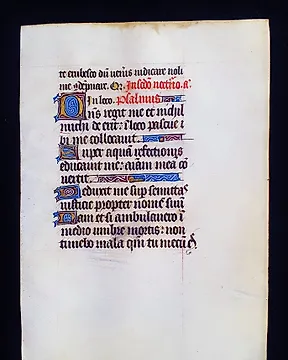 re erubesco dū veneris iudicare noli
me ꝯdēpnare. Or. In scdo nocturno. a.
In loco. psalmus
Dns regit me et nichil
michi deerit: ī loco pascue i
bi me collocavit.
Super aquā refectionis
educavit me: aīam meā cō
vertit.
Deduxit me sup semitas
iusticie propter nomē suū
Nam et si ambulavero ī
medio umbre mortis: non
timebo mala qm̄ tu mecū es